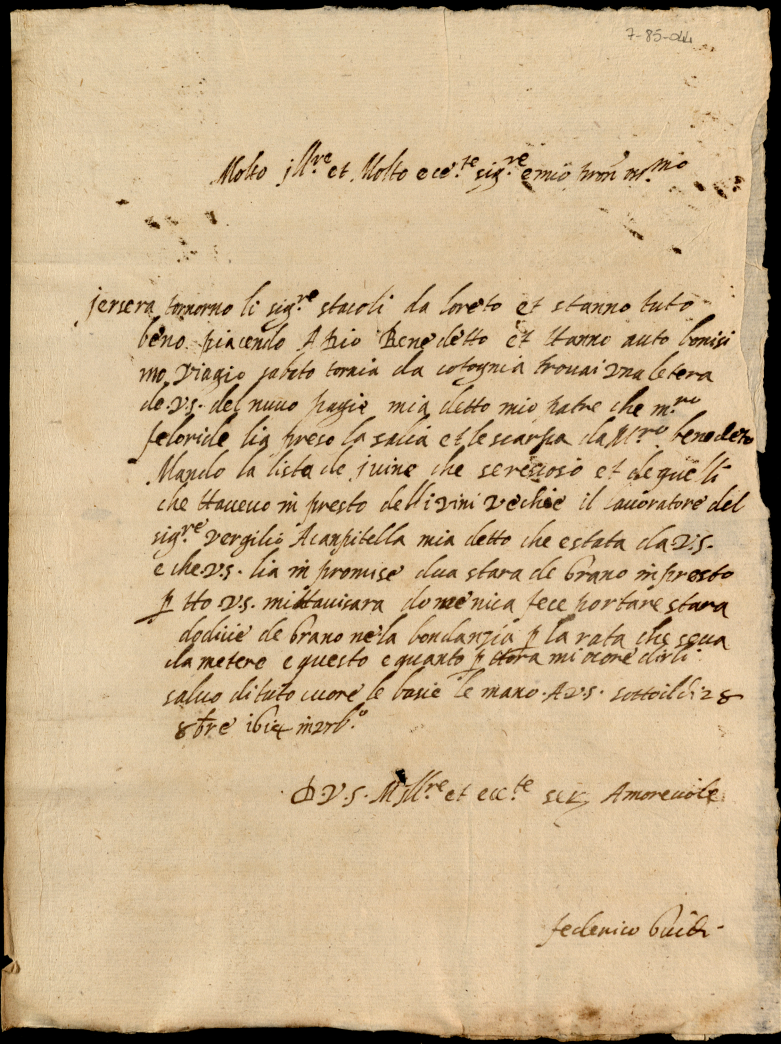 7-85-044
Molto jll.re et Molto ecc.te sig.re e mio pron
jersera tornorno li sig.re stacoli da loreto et stanno tuto
bene piacendo A Dio Benedetto et Hanno auto bonisi
mo viagio sabato tornia da cotognia trouai vna letera
de V.S. del nuvo pagie mia detto mio patre che m.ro
feloride lia preso la salia et le scarpa da M.ro benedeto
Mando la lista de j vine che se et de quelli
che Haveuo in presto delli vini vechie il lauoratore del
sig.re vergilio Acanpitella mia detto che e stata da V.S.
e che V.S. lia in promise dua stara de Grano in presto
p tto V.S. mi Hauisara domenica fece portare stara
dodicie de Grano nela bondanzia p la rata che seua
da metere e questo e quanto p Hora mi ocore dirli
saluo di tuto cuore le basie le mano A V.S. sotto il di 28
8bre 1614 in vrb.o
D V.S. M Ill.re et ecc.te Amoreuole
federico Guidi